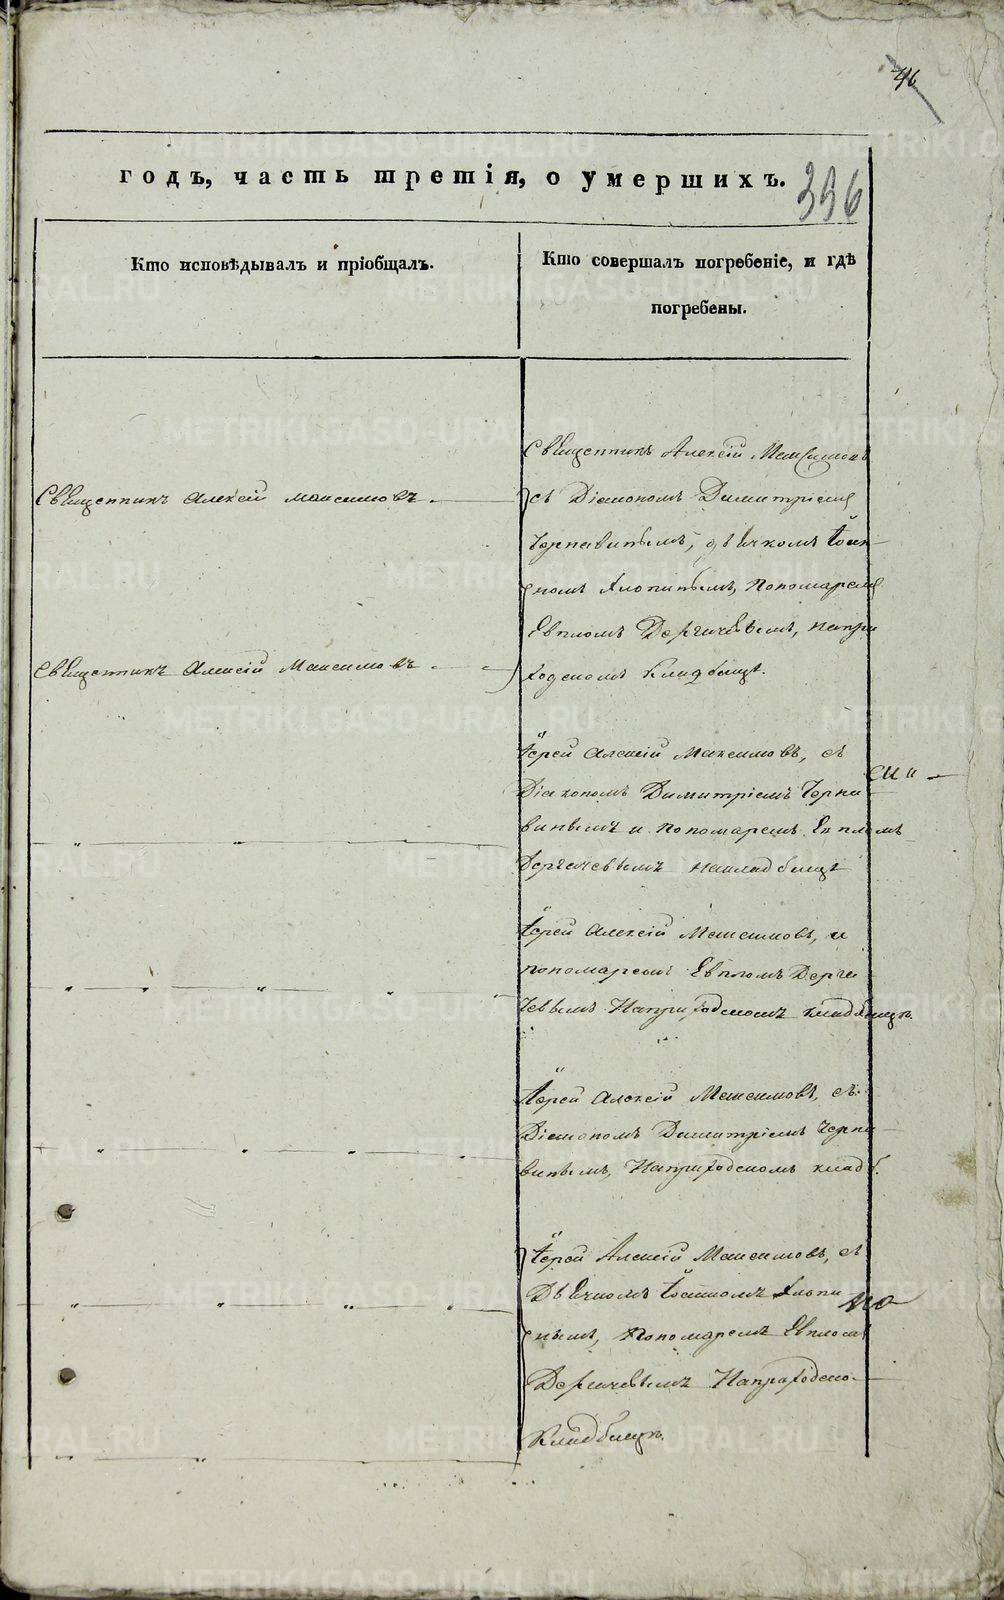 46
годъ, часть третія, о умершихъ.
396
Кто исповѣдывалъ и пріобщалъ.
Кто совершалъ погребеніе, и гдѣ
погребены.
Священникъ Алексій Максимовъ
Священникъ Алексій Максимовъ
Священникъ Алексій Максимовъ
съ Діакономъ Димитріемъ
Чернавинымъ, дьячкомъ Іоан-
номъ Хлопинымъ, Пономаремъ
Евпломъ Дергачевымъ, на при
ходскомъ кладбищѣ.
Іерей Алексій Максимовъ, съ
Діакономъ Димитріемъ Черна
винымъ и Пономаремъ Евпломъ
Дергачевымъ на кладбищѣ
Іерей Алексій Максимовъ, и
пономаремъ Евпломъ Дерга
чевымъ На приходскомъ кладбищѣ.
Іерей Алексій Максимовъ, съ
Діакономъ Димитріемъ Черна
винымъ, На приходскомъ кладб.
Іерей Алексій Максимовъ, съ
Дьячкомъ Іоанномъ Хлопи
нымъ, Пономаремъ Евпломъ
Дергачевымъ На приходско-
Кладбищѣ.
METRIKI.GASO-URAL.RU